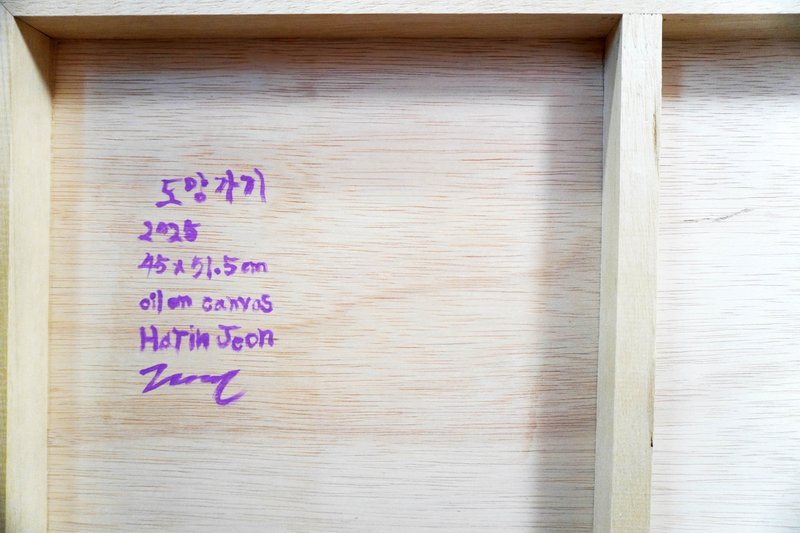 도망가기
2025
45 x 51.5 cm
oil on canvas
Harin Jeon